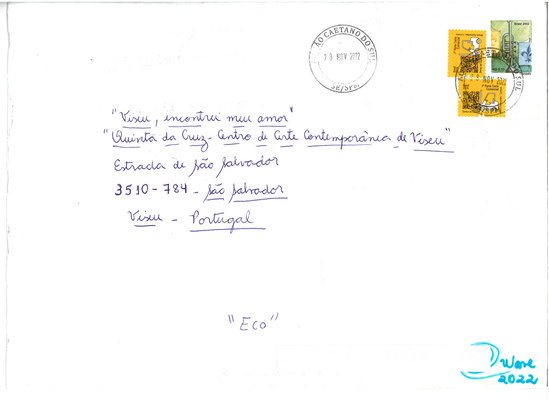 ÃO CAETANO DO SUL
28 NOV 2022
SE/SPM
Brasil 2012
"Viseu, encontrei meu amor"
"Quinta da Cruz - Centro de Arte Contemporânea de Viseu"
Estrada de São Salvador
3510-784 - São Salvador
Viseu - Portugal
"Eco"
DWave
2022